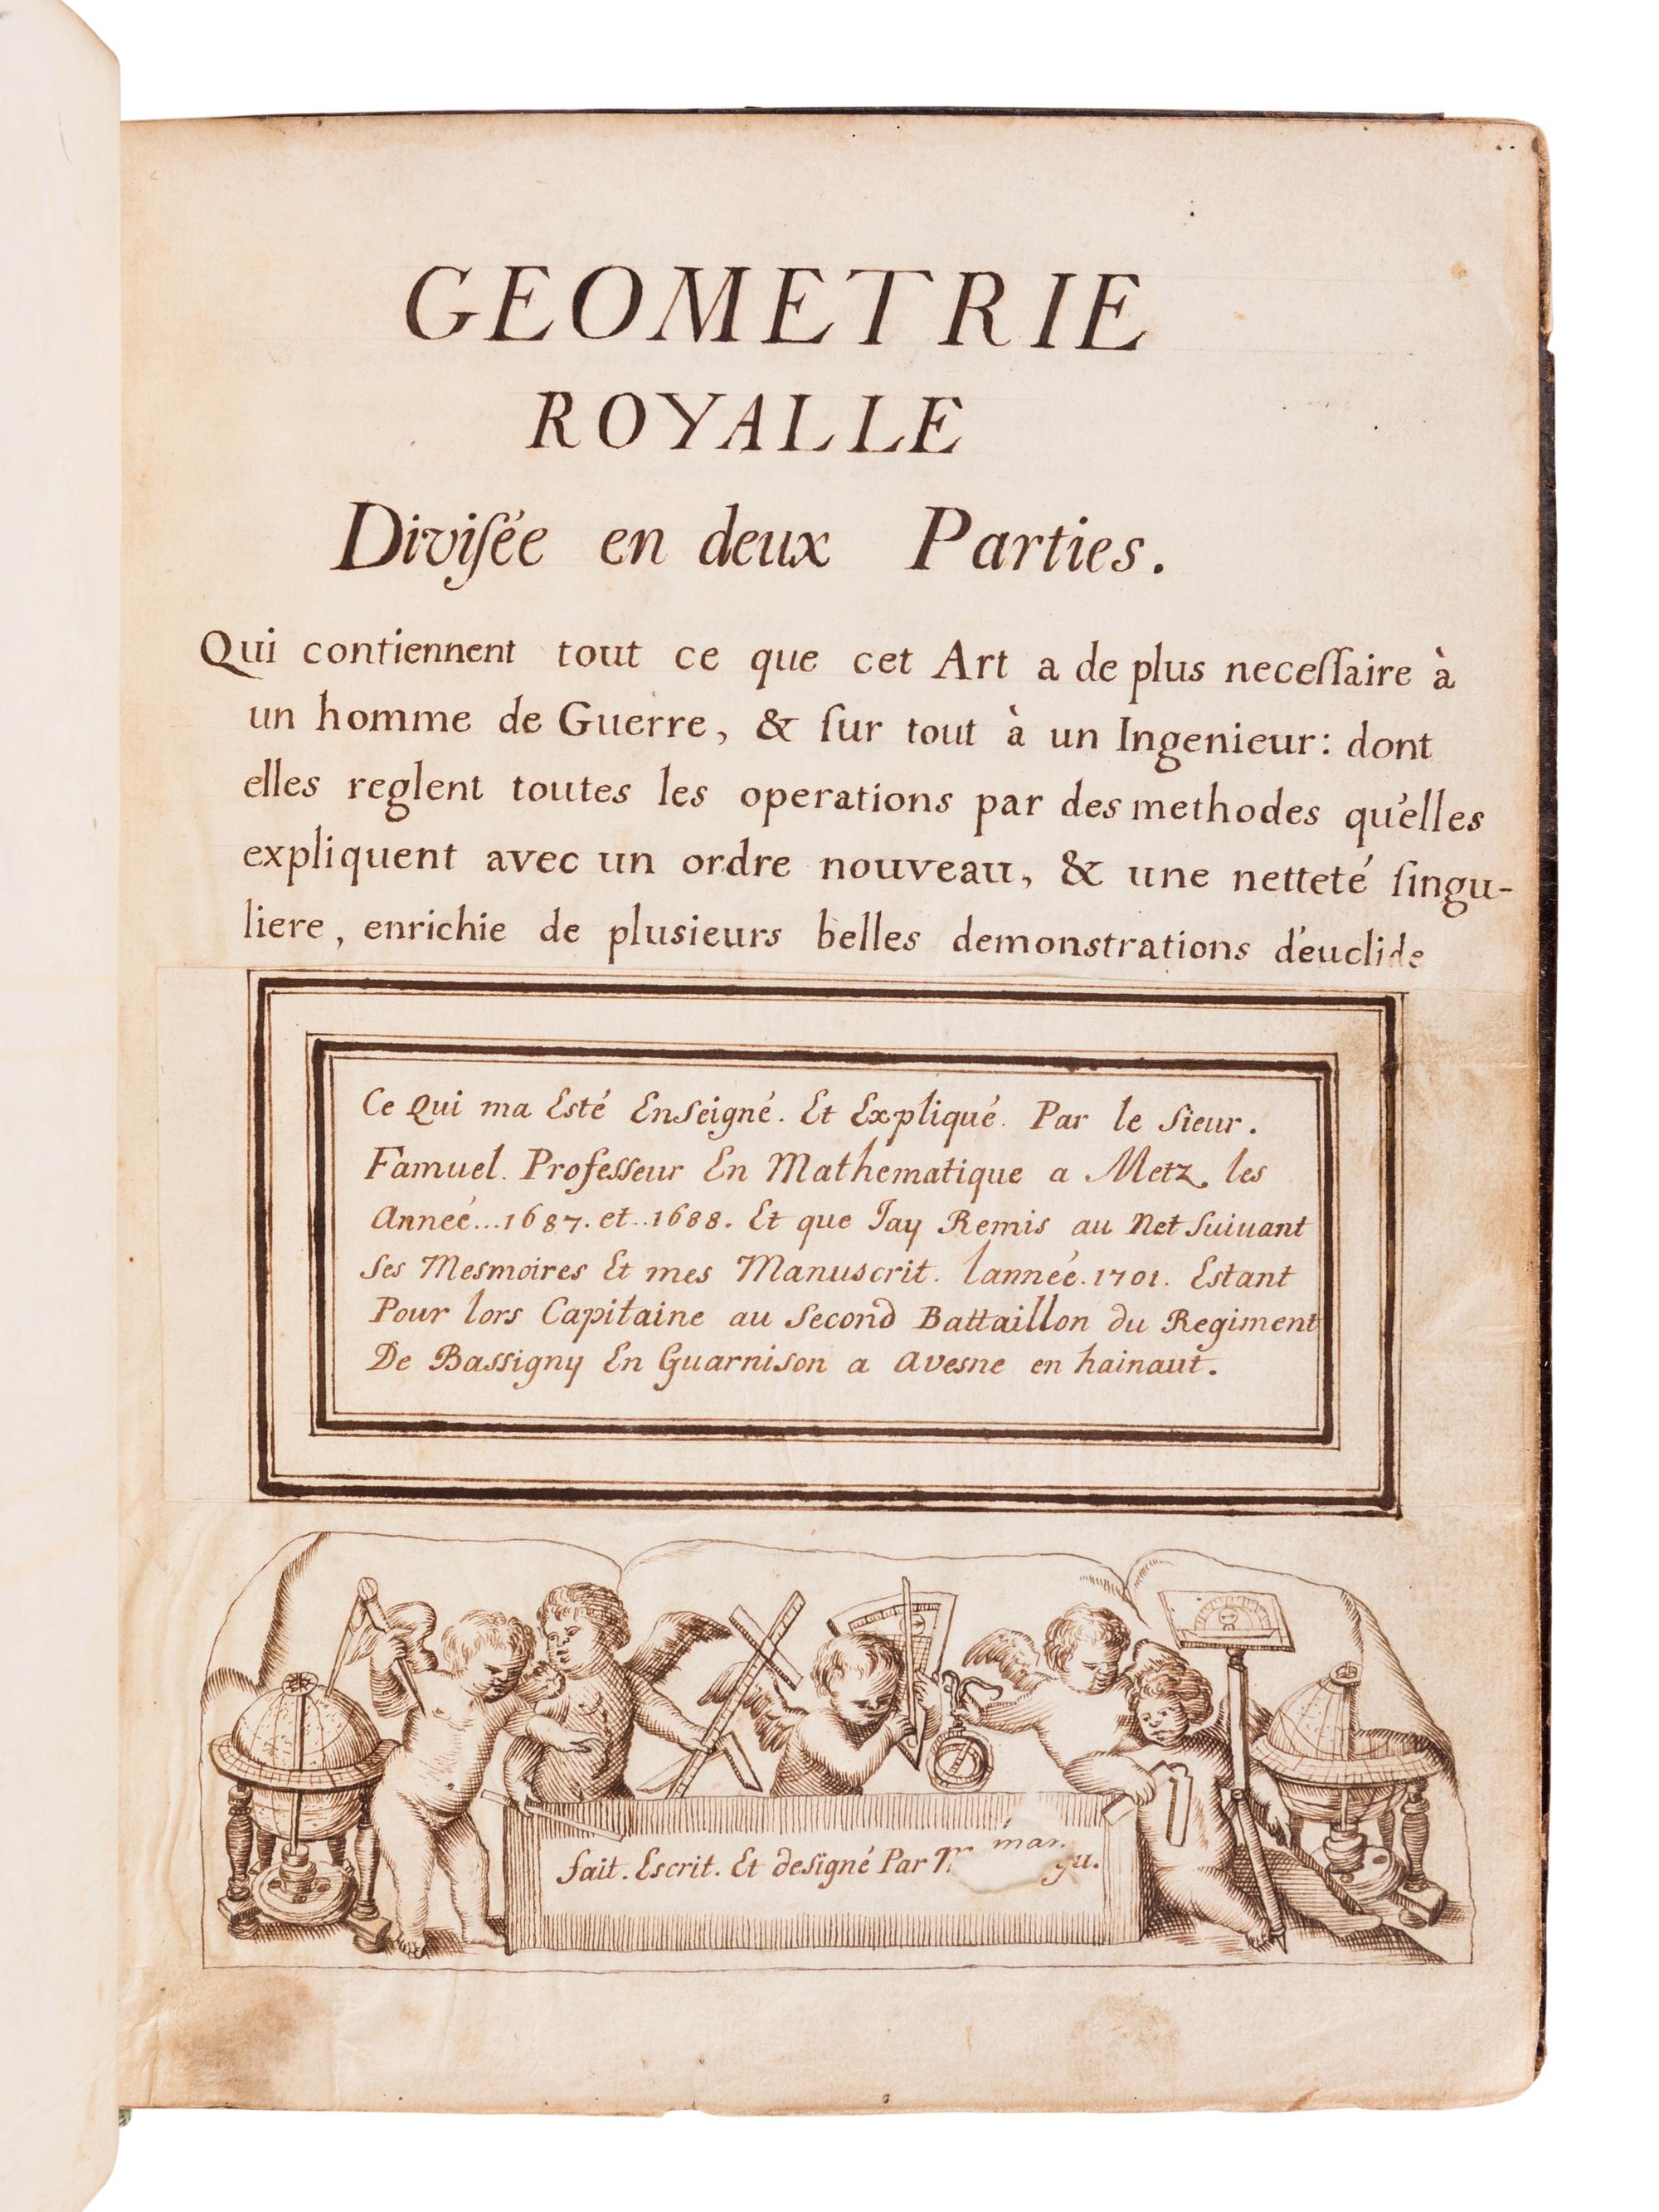 GEOMETRIE
ROYALLE
Diviſée en deux Parties.
Qui contiennent tout ce que cet Art a de plus neceſſaire à
un homme de Guerre, & ſur tout à un Ingenieur: dont
elles reglent toutes les operations par des methodes qu'elles
expliquent avec un ordre nouveau, & une netteté ſingu-
liere, enrichie de plusieurs belles demonstrations d'euclide
Ce Qui ma Esté Enseigné. Et Expliqué. Par le Sieur.
Famuel. Professeur En Mathematique a Metz. les
Anneé...1687. et..1688. Et que Jay Remis au Net Suiuant
Ses Mesmoires Et mes Manuscrit. lanneé.1701. Estant
Pour lors Capitaine au Second Battaillon du Regiment
De Bassigny En Guarnison a Avesne en hainaut.
fait. Escrit. Et designé Par